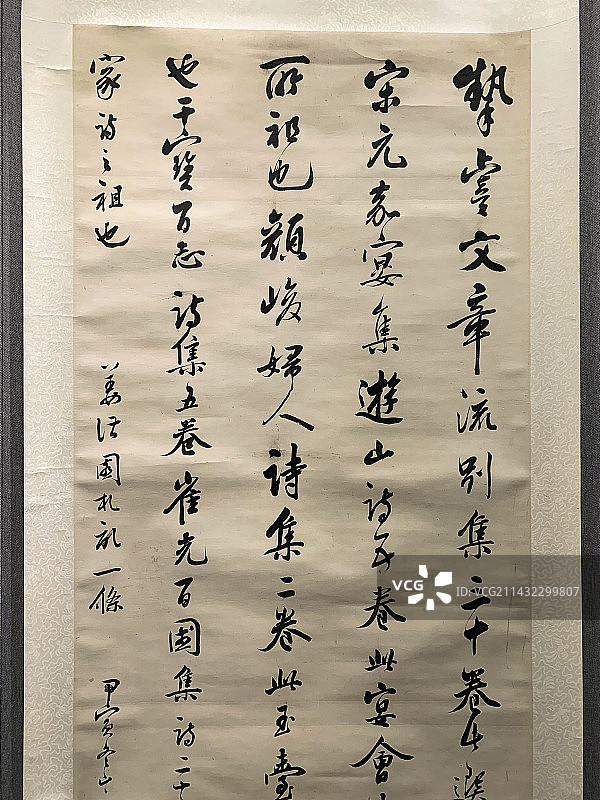 摯虞文章流別集二十卷此選
宋元嘉宴集遊山詩五卷此宴會
所祖也顏峻婦人詩集二卷此玉臺
也干寶百志詩集五卷崔光百國集詩二十
家詩之祖也
姜湛園札記一條
甲寅冬
VCG
ID: VCG211432299807